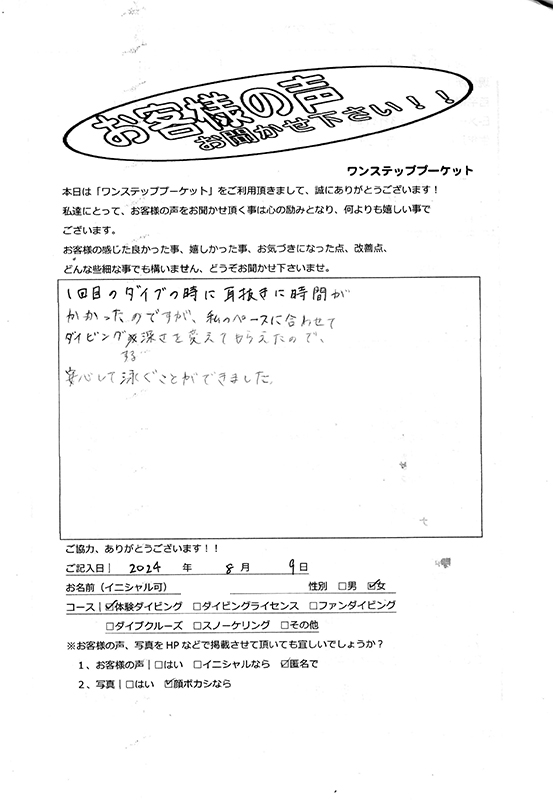 お客様の声
お聞かせ下さい！！
ワンステッププーケット
本日は「ワンステッププーケット」をご利用頂きまして、誠にありがとうございます！
私達にとって、お客様の声をお聞かせ頂く事は心の励みとなり、何よりも嬉しい事で
ございます。
お客様の感じた良かった事、嬉しかった事、お気づきになった点、改善点、
どんな些細な事でも構いません、どうぞお聞かせ下さいませ。
1回目のダイブの時に耳抜きに時間が
かかったのですが、私のペースに合わせて
ダイビング 深さを変えてもらえたので、
する
安心して泳ぐことができました。
ご協力、ありがとうございます！！
ご記入日| 2024 年 8月 9日
お名前（イニシャル可） 性別 □男 ☑女
コース|☑体験ダイビング □ダイビングライセンス □ファンダイビング
□ダイブクルーズ □スノーケリング □その他
※お客様の声、写真をHPなどで掲載させて頂いても宜しいでしょうか？
1、お客様の声|□はい □イニシャルなら ☑匿名で
2、写真|□はい ☑顔ボカシなら